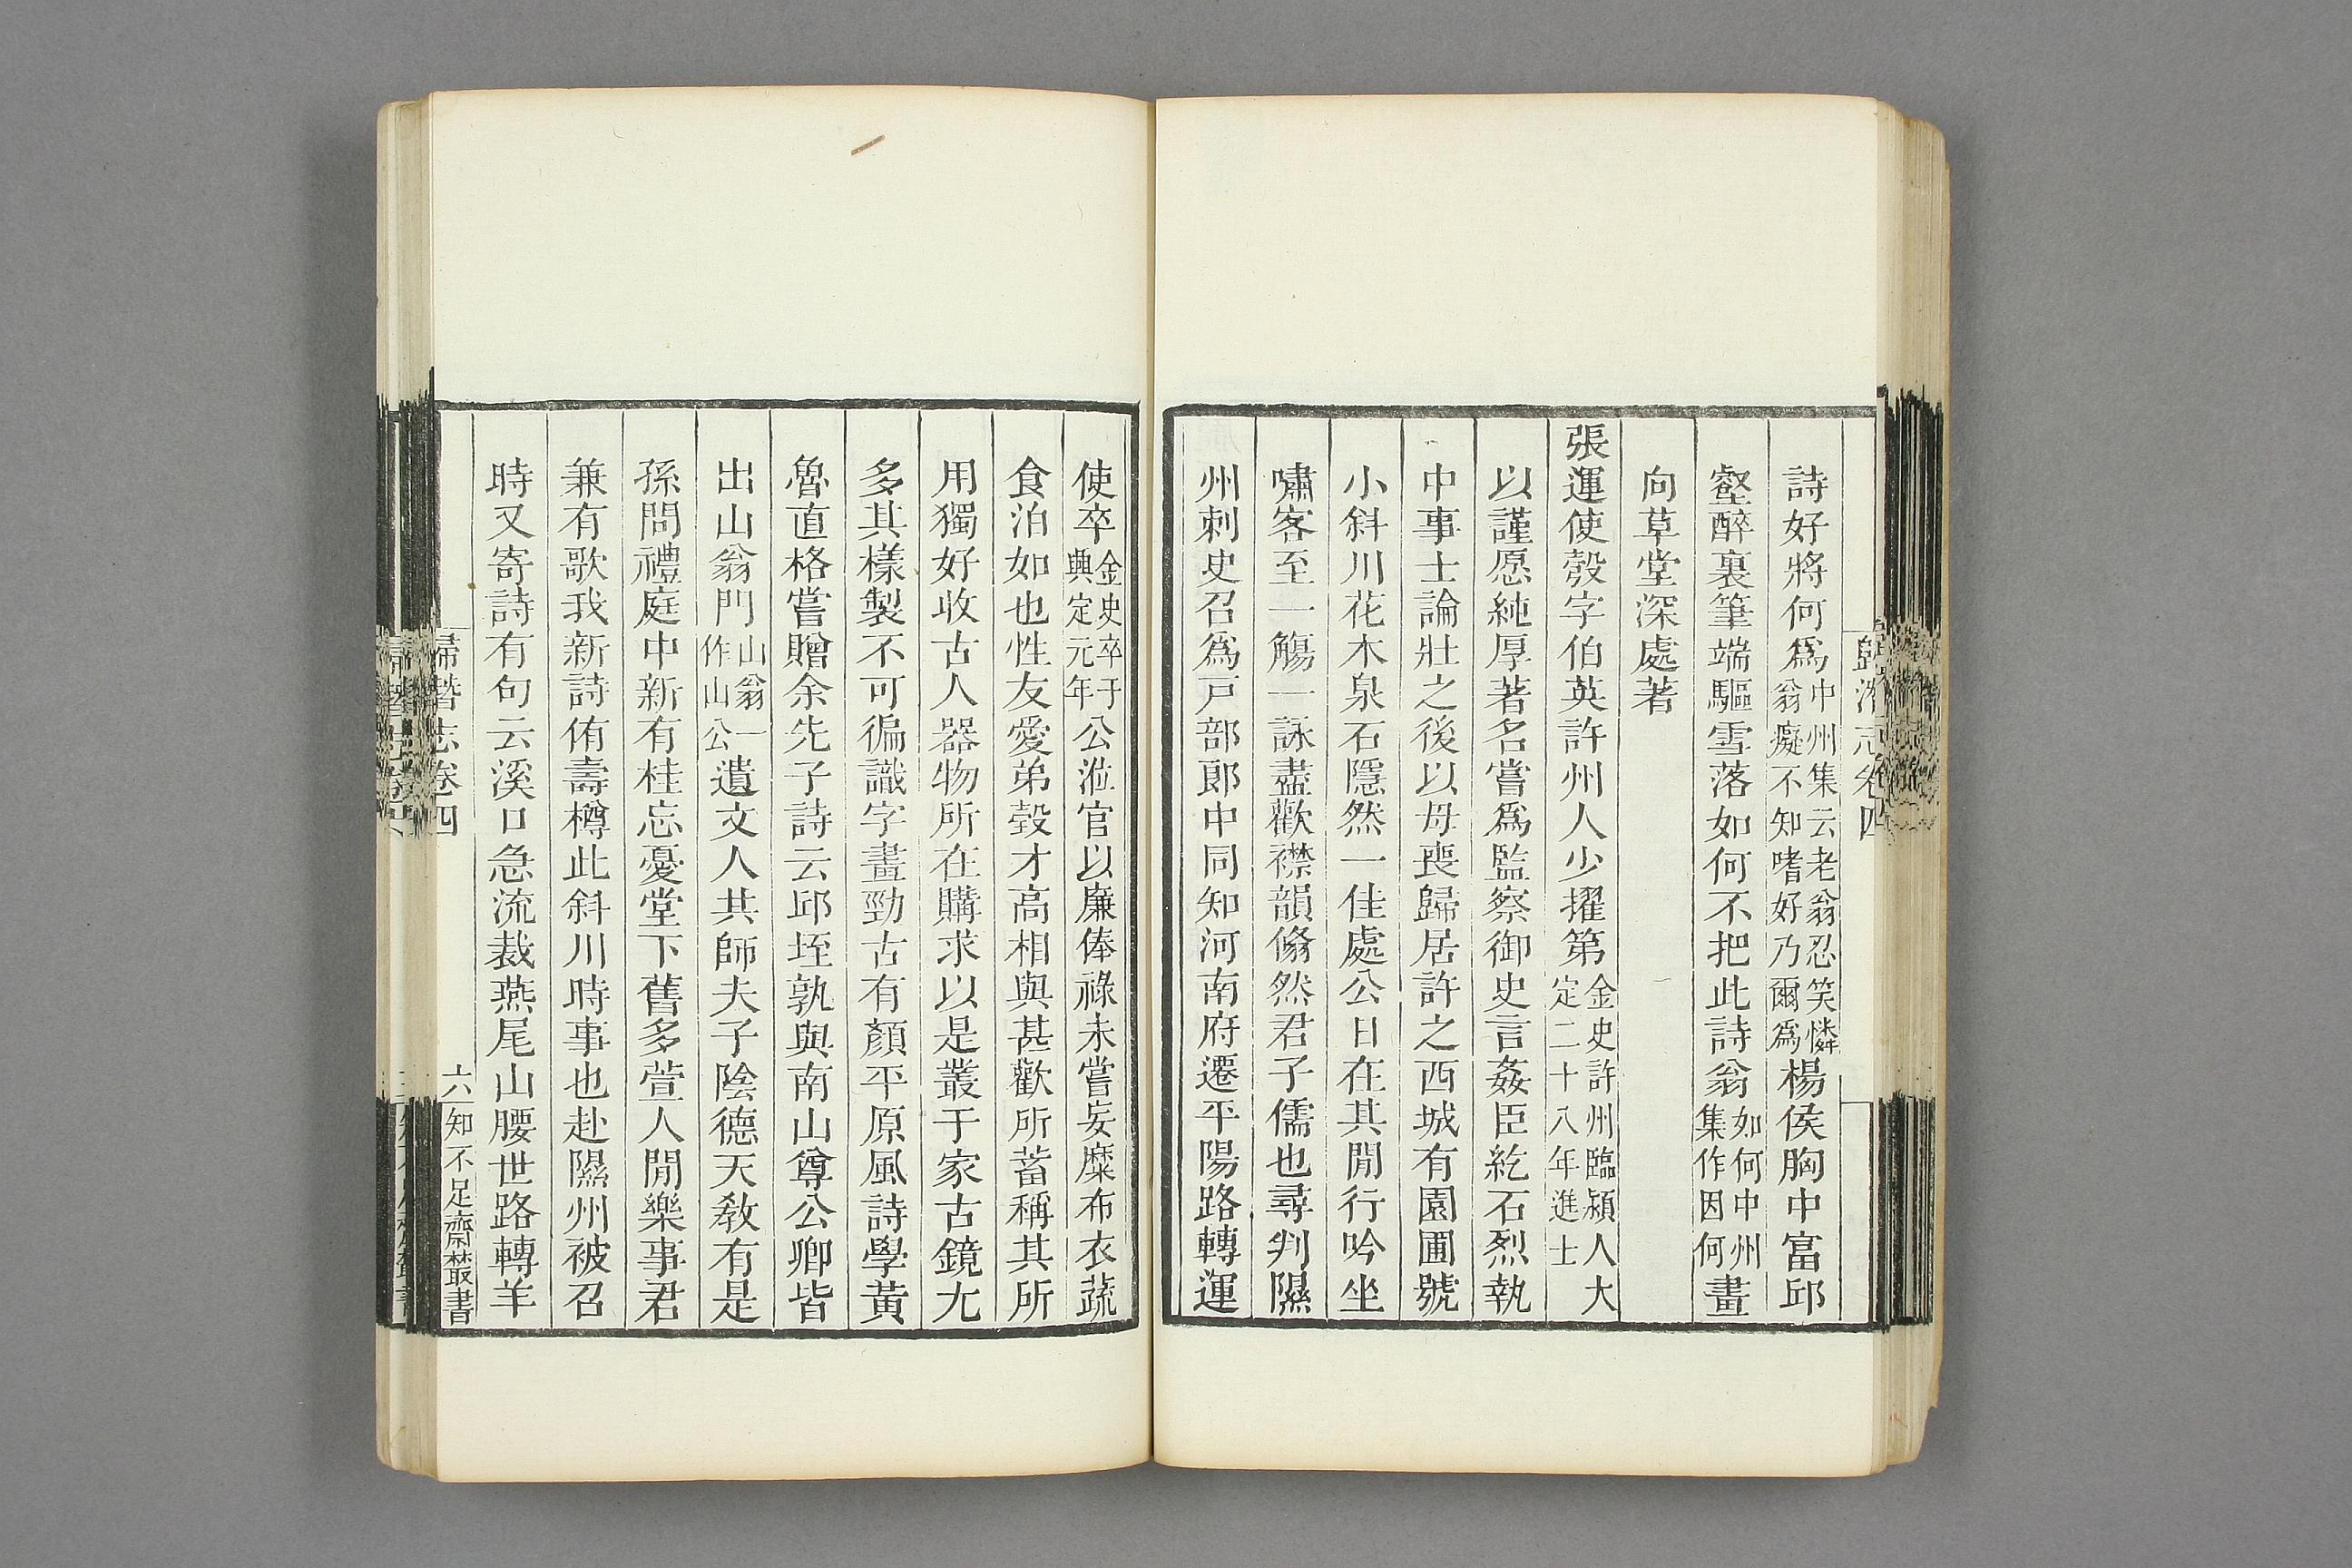 歸潛志卷四
詩好將何爲中州集云老翁忍笑憐翁癡不知嗜好乃爾爲楊侯胸中富邱
壑醉裏筆端驅雪落如何不把此詩翁如何中州集作因何畫
向草堂深處著
張運使瑴字伯英許州人少擢第金史許州臨潁人大定二十八年進士
以謹愿純厚著名嘗爲監察御史言姦臣紇石烈執
中事士論壯之後以母喪歸居許之西城有園圃號
小斜川花木泉石隱然一佳處公日在其閒行吟坐
嘯客至一觴一詠盡歡襟韻翛然君子儒也尋判隰
州刺史召爲戸部郎中同知河南府遷平陽路轉運
使卒金史卒于興定元年公涖官以廉俸祿未嘗妄糜布衣蔬
食泊如也性友愛弟瑴才高相與甚歡所蓄稱其所
用獨好收古人器物所在購求以是叢于家古鏡尤
多其樣製不可徧識字畫勁古有顏平原風詩學黃
魯直格嘗贈余先子詩云邱垤孰與南山尊公卿皆
出山翁門山翁一作山公遺文人共師夫子陰德天教有是
孫問禮庭中新有桂忘憂堂下舊多萱人閒樂事君
兼有歌我新詩侑壽樽此斜川時事也赴隰州被召
時又寄詩有句云溪口急流裁燕尾山腰世路轉羊
歸潛志卷四
六
知不足齋叢書